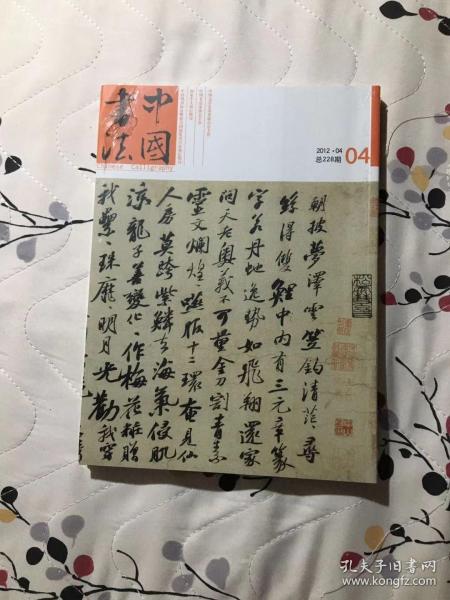 中國
書法
Chinese Calligraphy
2012·04
总228期
04
朝披夢澤雲笠釣清茫〻尋
絲得雙鯉中内有三元章篆
字若丹虵逸勢如飛翔還家
問天老奥義不可量金刀割青素
靈文爛煌〻嚥服十二環奄見仙
人房莫跨紫鱗去海氣侵肌
涼龍子善變化〻作梅花粧贈
我纍〻珠靡〻明月光勸我穿
孔夫子旧书网
www.kongfz.com